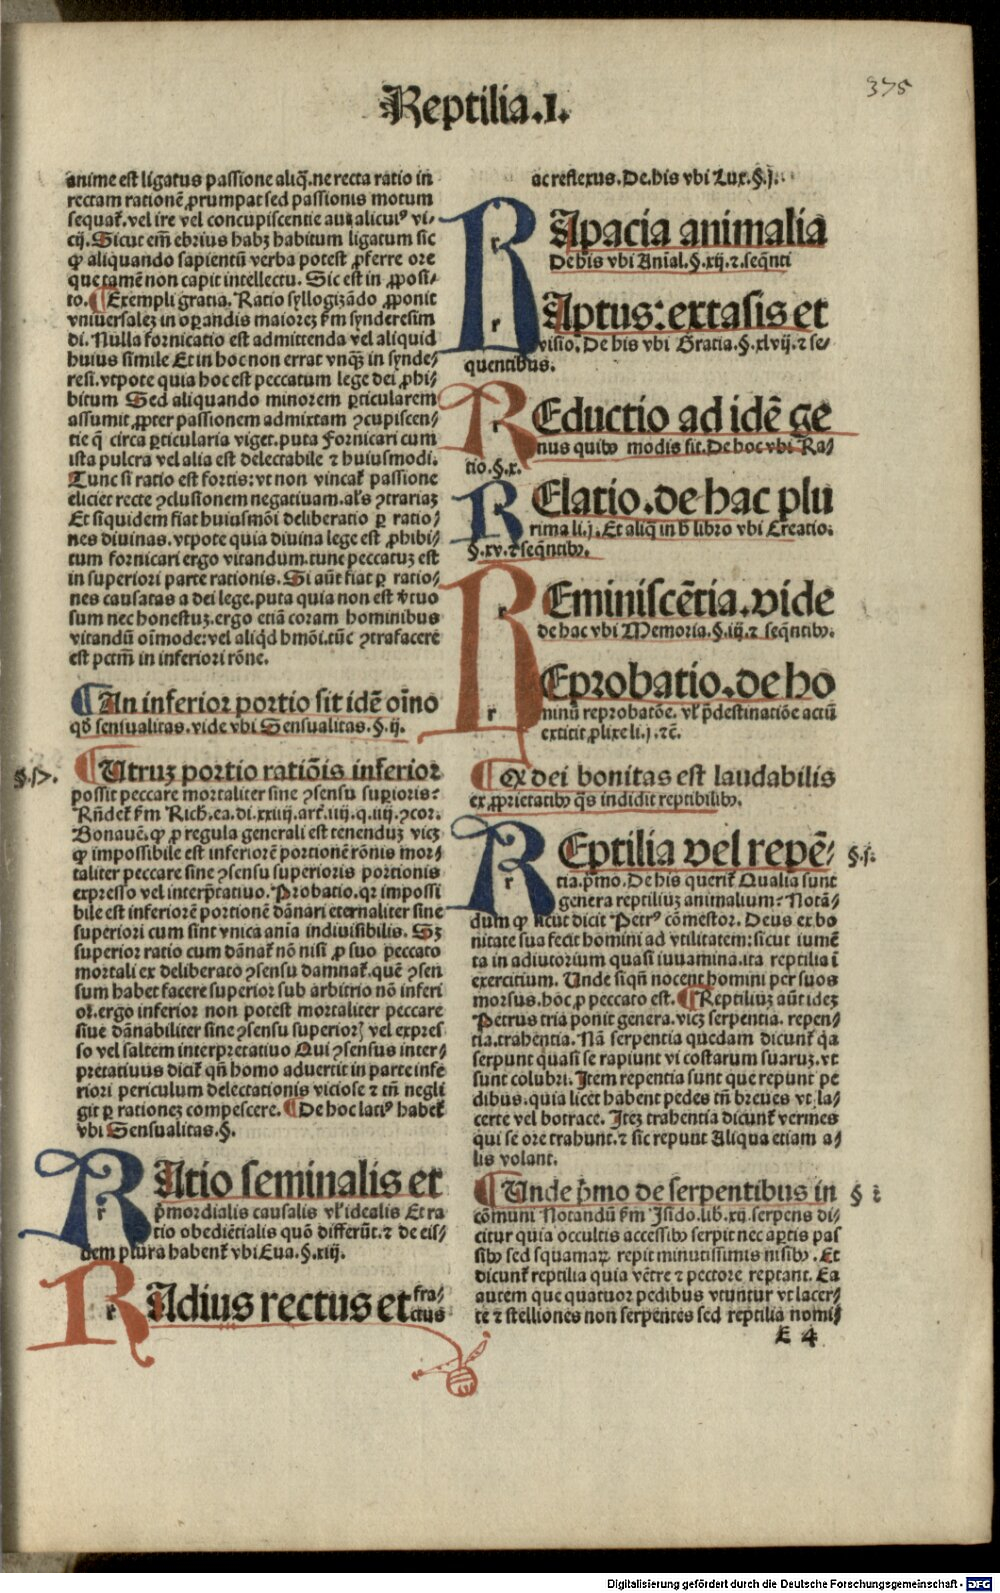 375
Reptilia .I.
anime est ligatus passione aliq̃. ne recta ratio in
rectam rationē ꝓrumpat sed passionis motum
sequat᷑. vel ire vel concupiscentie aut alicuiꝰ vi-
cij. Sicut em̄ ebrius habꝫ habitum ligatum sic
ꝙ aliquando sapientū verba potest ꝓferre ore
que tamē non capit intellectu. Sic est in ꝓposi-
to. ¶ Exempli gratia. Ratio syllogizādo ꝓponit
vniuersaleꝫ in oꝑandis maioreꝫ s̄m synderesim
di. Nulla fornicatio est admittenda vel aliquid
huius simile Et in hoc non errat vnqꝫ in synde-
resi. vtpote quia hoc est peccatum lege dei ꝓhi-
bitum Sed aliquando minorem ꝑticularem
assumit ꝓpter passionem admixtam ꝯcupiscen-
tie q̄ circa ꝑticularia viget. puta fornicari cum
ista pulcra vel alia est delectabile ⁊ huiusmodi.
Tunc si ratio est fortis: vt non vincat᷑ passione
eliciet recte ꝯclusionem negatiuam. al's ꝯtrariaꝫ
Et siquidem fiat huiusmōi deliberatio ꝑ ratio-
nes diuinas. vtpote quia diuina lege est ꝓhibi-
tum fornicari ergo vitandum. tunc peccatuꝫ est
in superiori parte rationis. Si aūt fiat ꝑ ratio-
nes causatas a dei lege. puta quia non est v̓tuo
sum nec honestuꝫ. ergo etiā coram hominibus
vitandū oīmode: vel aliqd̓ hmōi. tūc ꝯtrafacere
est pctm̄ in inferiori rōne.
¶ An inferior portio sit idē oīno
qd̓ sensualitas. vide vbi Sensualitas. §. ij.
¶ Utruꝫ portio ratiōis inferior
possit peccare mortaliter sine ꝯsensu suꝑioris?
Rn̄det᷑ s̄m Rich. ea. di. xxiiij. art᷑. iiij. q. iiij. ꝯcor.
Bonauē. ꝙ ꝓ regula generali est tenenduꝫ viꝫ
ꝙ impossibile est inferiorē portionē rōnis mor-
taliter peccare sine ꝯsensu superioris portionis
expresso vel interp̄tatiuo. Probatio. qꝛ impossi
bile est inferiorē portionē dānari eternaliter sine
superiori cum sint vnica aīa indiuisibilis. Sꝫ
superior ratio cum dānat᷑ nō nisi ꝓ suo peccato
mortali ex deliberato ꝯsensu damnat᷑. quē ꝯsen
sum habet facere superior sub arbitrio nō inferi
oꝛ. ergo inferior non potest mortaliter peccare
siue dānabiliter sine ꝯsensu superioꝝ vel expres
so vel saltem interpretatiuo Qui ꝯsensus inter-
pretatiuus dicit᷑ qn̄ homo aduertit in parte infe
riori periculum delectationis viciose ⁊ tn̄ negli
git ꝑ rationeꝫ compescere. ¶ De hoc latiꝰ habet᷑
vbi Sensualitas. §.
RAtio seminalis et
p̄mordialis causalis vl' idealis Et ra
tio obediētialis quō differūt. ⁊ de eis-
dem plura habent᷑ vbi Eua. §. xiij.
RAdius rectus et fra-
ctus
ac reflexus. De his vbi Lux. §. j.
RApacia animalia
De his vbi Anial. §. xij. ⁊ seq̄nti
RAptus: extasis et
visio. De his vbi Gratia. §. xlvij. ⁊ se-
quentibus.
REductio ad idē ge
nus quibꝰ modis fit. De hoc vbi Ra-
tio. §. x.
RElatio. de hac plu
rima li. j. Et aliq̄ in h̓ libro vbi Creatio.
§. xv. ⁊ seq̄ntibꝰ.
REminiscētia. vide
de hac vbi Memoria. §. iij. ⁊ seq̄ntibꝰ.
REprobatio. de ho
minū reprobatōe. vl' p̄destinatiōe actū
extitit ꝓlixe li. j. ⁊c̄.
¶ Qꝫ dei bonitas est laudabilis
ex ꝓprietatibꝰ q̄s indidit reptibilibꝰ.
REptilia vel repē-
tia. p̄mo. De his querit᷑ Qualia sunt
genera reptiliuꝫ animalium? Notā-
dum ꝙ sicut dicit Petrꝰ cōmestor. Deus ex bo
nitate sua fecit homini ad vtilitatem: sicut iumē
ta in adiutorium quasi iuuamina. ita reptilia ī
exercitium. Unde siqn̄ nocent homini per suos
morsus. hoc ꝓ peccato est. ¶ Reptiliuꝫ aūt ideꝫ
Petrus tria ponit genera. viꝫ serpentia. repen-
tia. trahentia. Nā serpentia quedam dicunt᷑ q̄a
serpunt quasi se rapiunt vi costarum suaruꝫ. vt
sunt colubri. Item repentia sunt que repunt pe
dibus. quia licet habent pedes tn̄ breues vt la-
certe vel botrace. Iteꝫ trahentia dicunt᷑ vermes
qui se ore trahunt. ⁊ sic repunt Aliqua etiam a-
lis volant.
¶ Unde p̄mo de serpentibus in
cōmuni Notandū s̄m Isido. lib. xij. serpens di-
citur quia occultis accessibꝰ serpit nec aꝑtis pas
sibꝰ sed squamaꝝ repit minutissimis nisibꝰ. Et
dicunt᷑ reptilia quia vētre ⁊ pectore reptant. Ea
autem que quatuor pedibus vtuntur vt lacer-
te ⁊ stelliones non serpentes sed reptilia nomi-
E 4
Digitalisierung gefördert durch die Deutsche Forschungsgemeinschaft - DFG